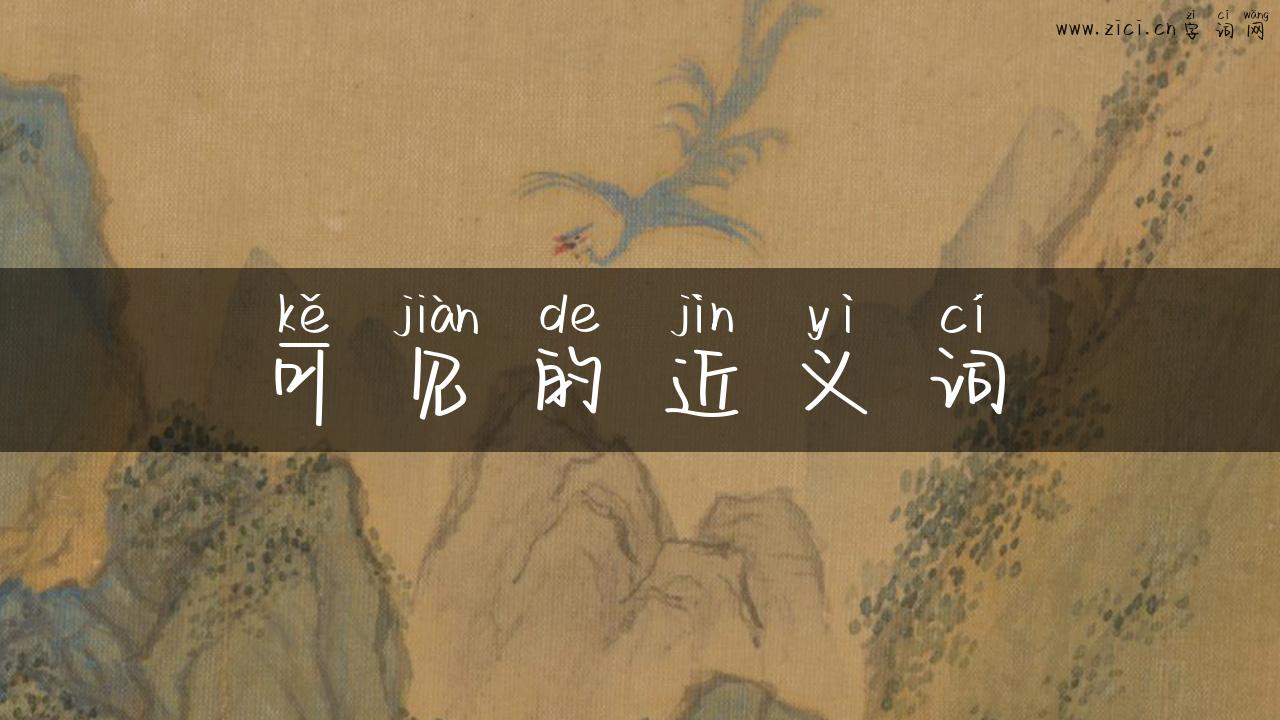 zì cí wǎng
www.zici.cn字词网
kě jiàn de jìn yì cí
可见的近义词